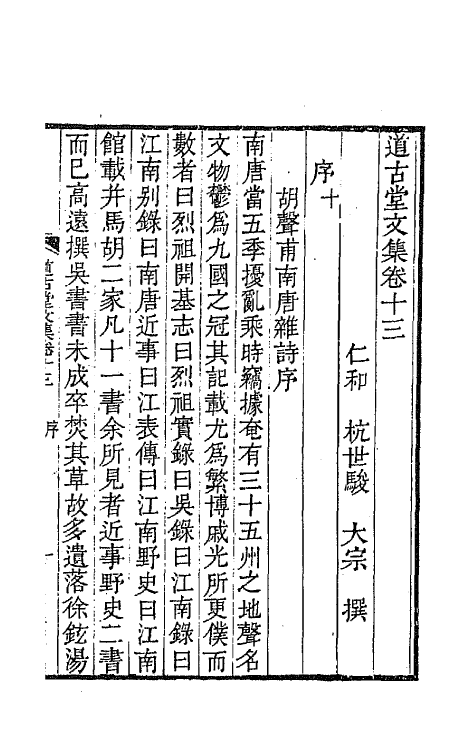 道古堂文集卷十三
仁和 杭世駿 大宗 撰
序十
胡聲甫南唐雜詩序
南唐當五季擾亂乘時竊據奄有三十五州之地聲名
文物鬱爲九國之冠其記載尤爲繁博戚光所更僕而
數者曰烈祖開基志曰烈祖實錄曰吳錄曰江南錄曰
江南别錄曰南唐近事曰江表傳曰江南野史曰江南
館載并馬胡二家凡十一書余所見者近事野史二書
而巳高遠撰吳書書未成卒焚其草故多遺落徐鉉湯
道古堂文集卷十三 序 一